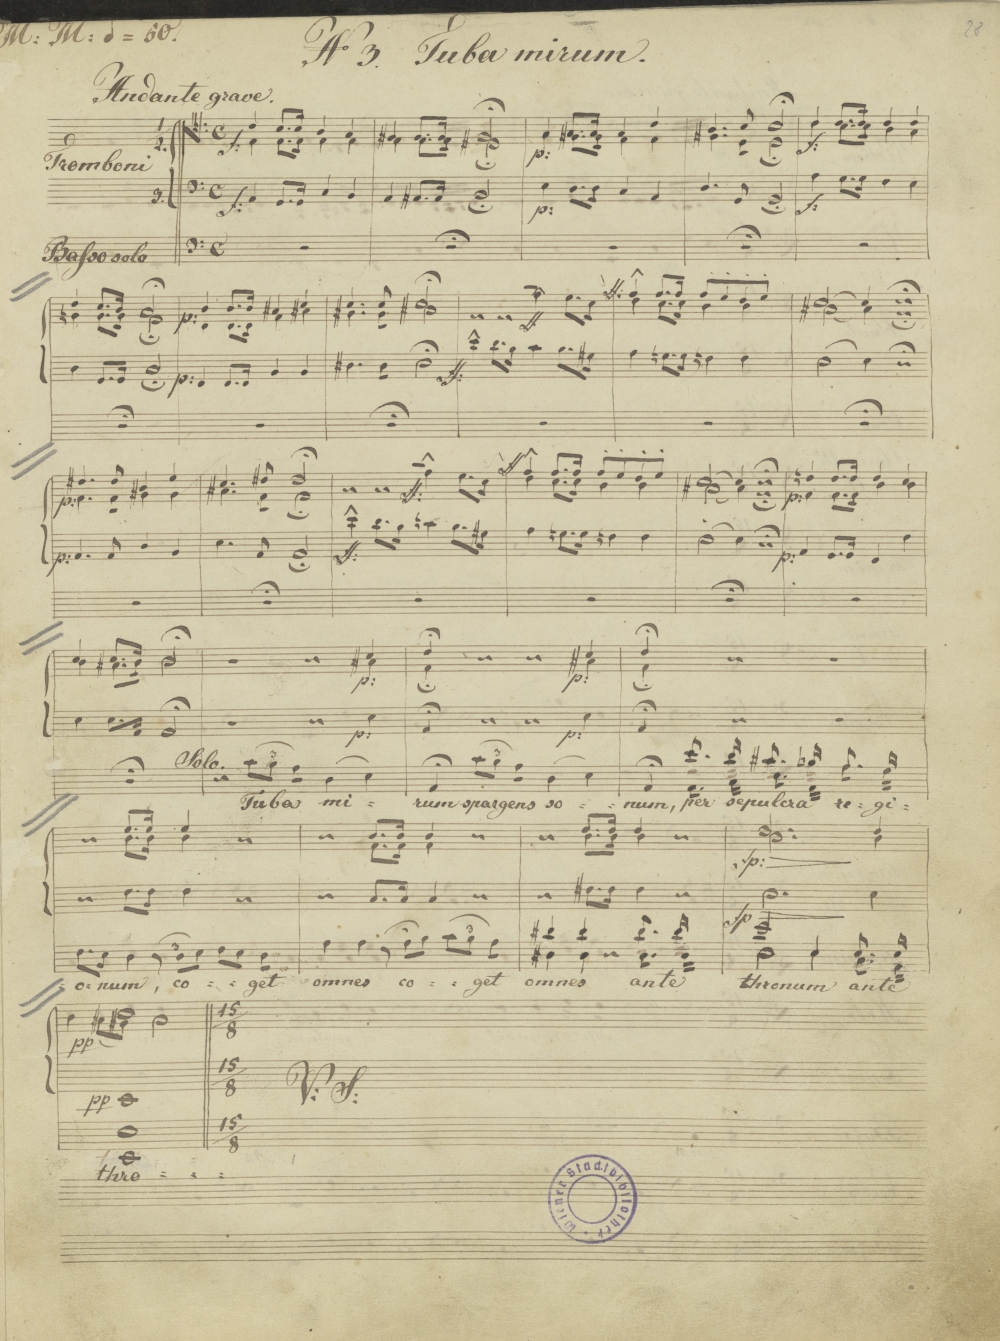 M: M: d = 50.
28
No 3. Tuba mirum.
Andante grave.
Tromboni
1.
2.
3.
Basso solo
f:
p:
f:
f:
p:
f:
p:
ff:
p:
ff:
p:
p:
ff:
p:
Solo.
p: p:
p: p:
3 3
Tuba mi - rum spargens so - - num, per sepulcra re - gi -
sp:
sp
3 3 3
o - num, co - - get omnes co - - get omnes ante thronum ante
pp
pp
15/8
15/8
15/8
V: S:
thro - - -
Wiener Stadtbibliothek